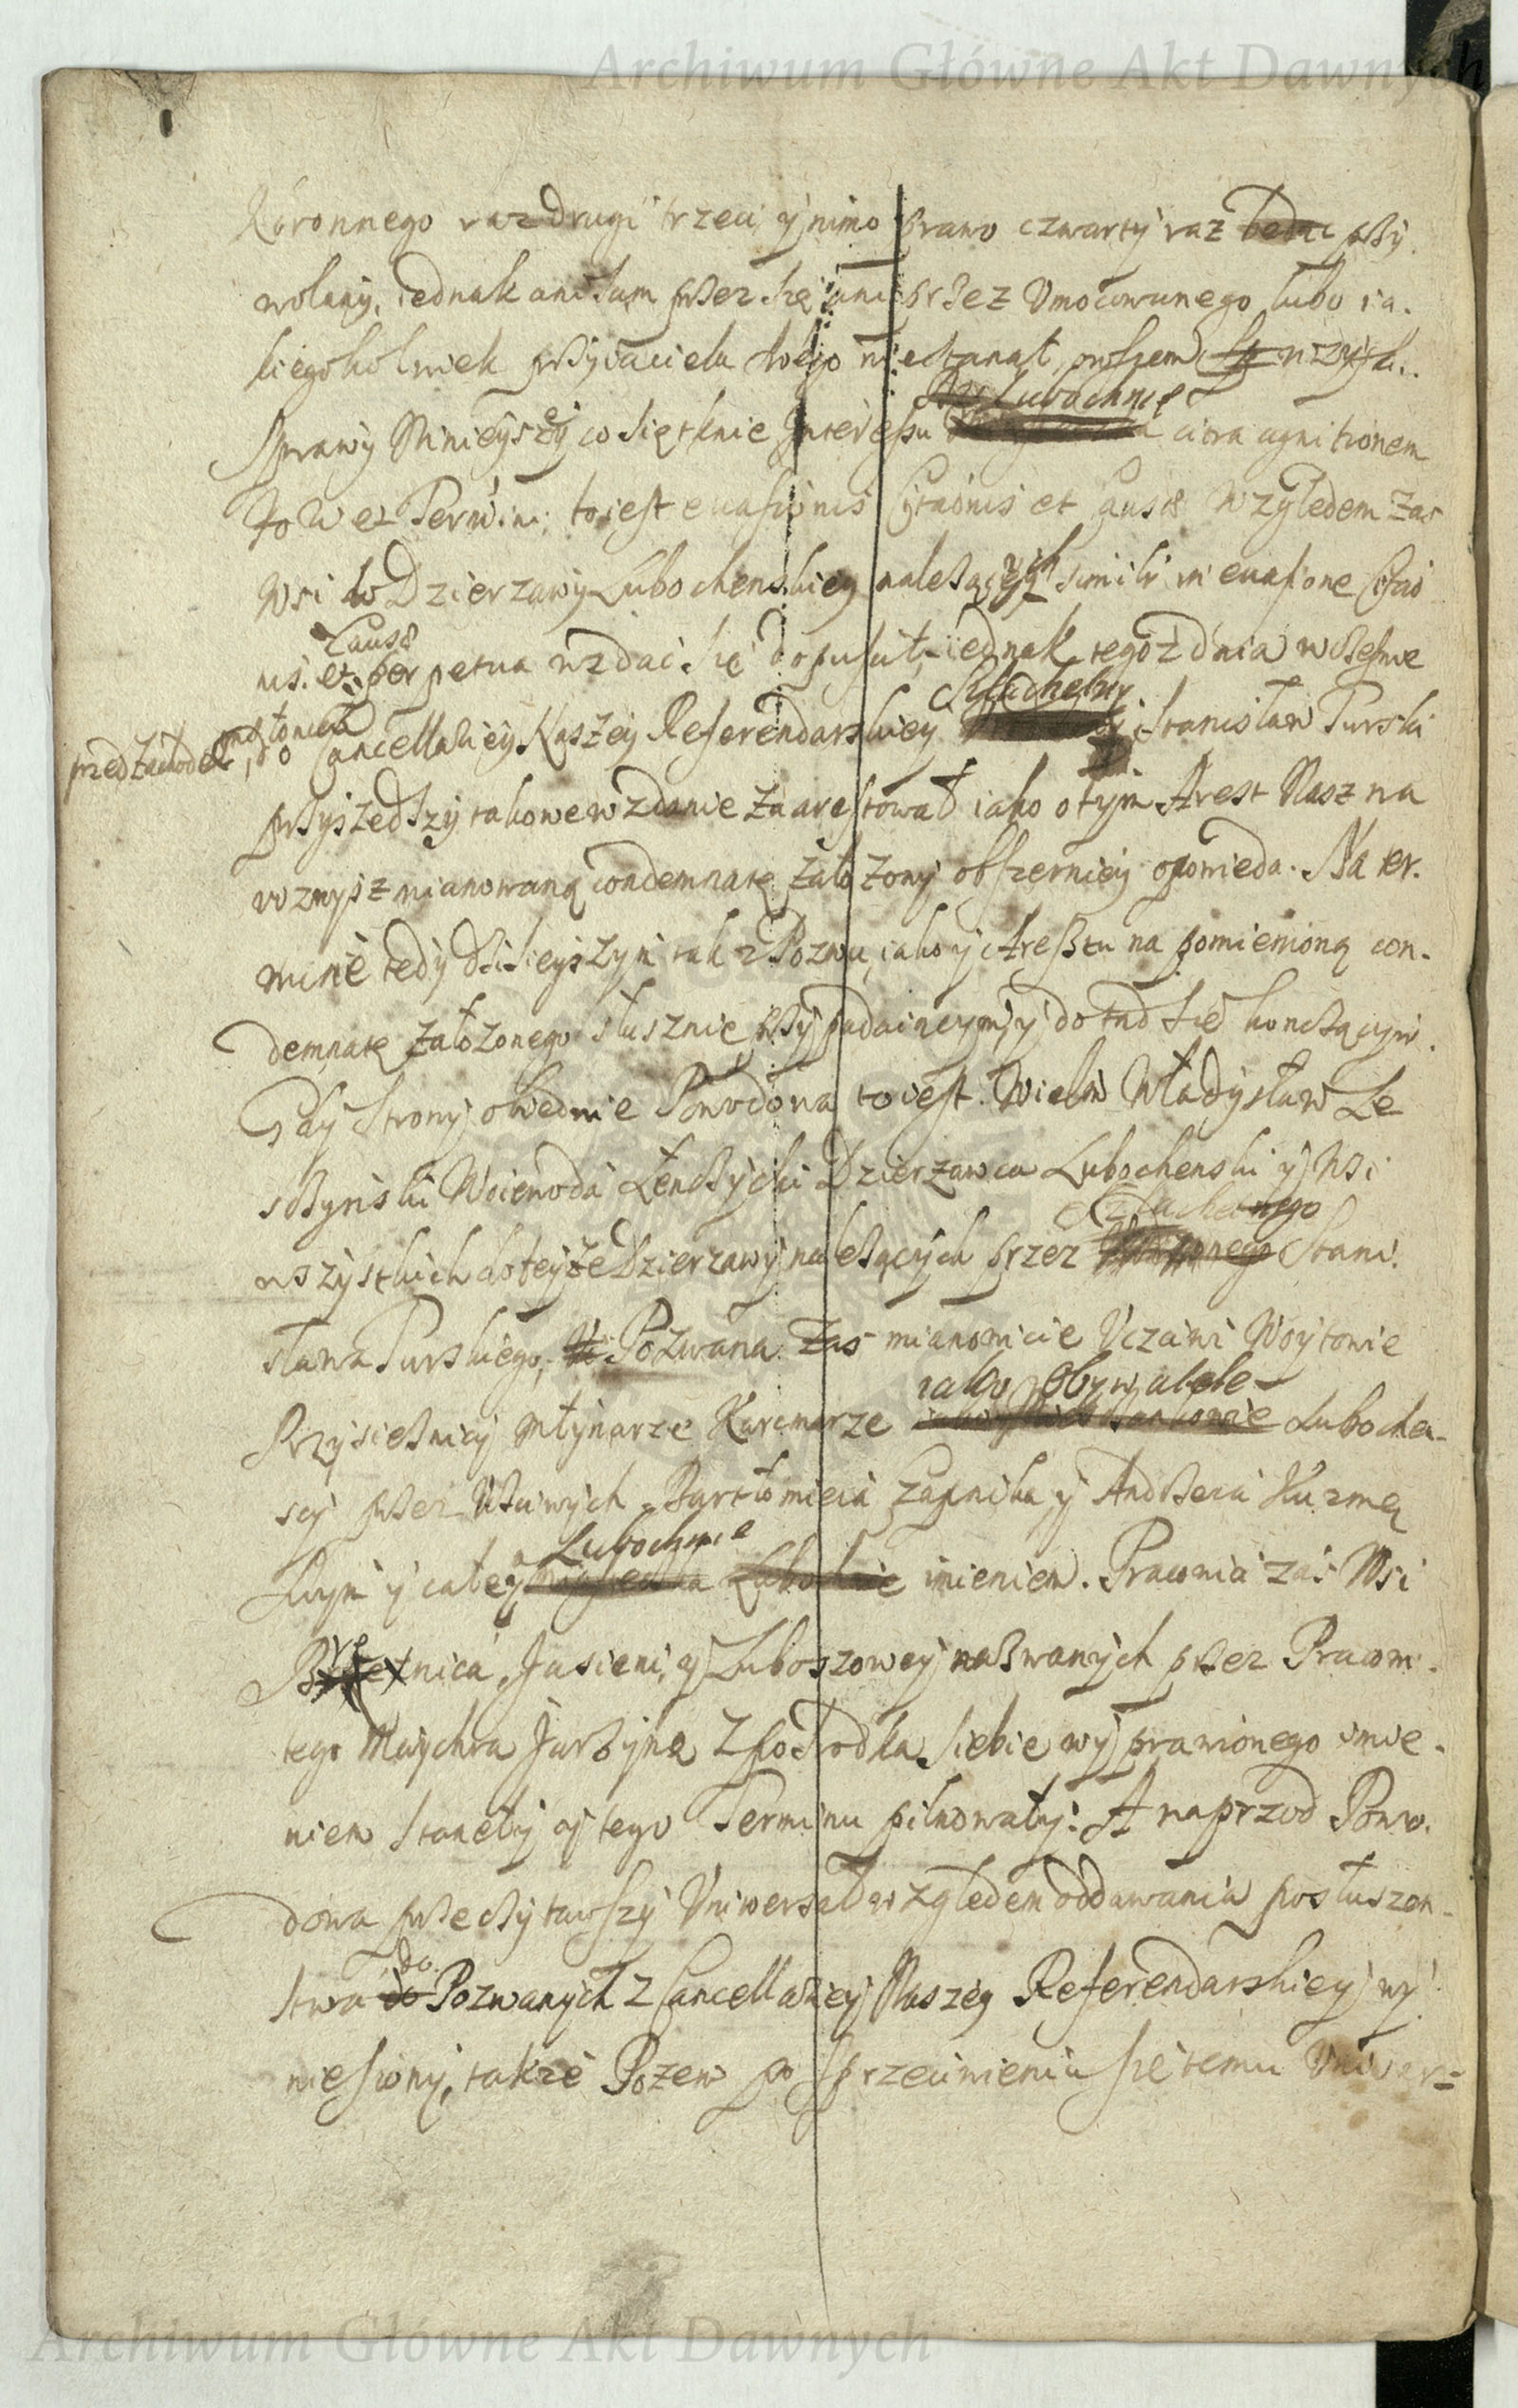 Archiwum Główne Akt Dawnych
Koronnego raz drugi trzeci y mimo prawo czwarty raz będąc przy
wołany, iednak ani sam przez się ani przez Umocowanego lubo ia.
kiegokolwiek przyiaciela swego nie stanął, owszem w zysk..
w Lubochnie
Sprawy Ninieyszey co się tknie Interessu citra agnitionem
to iest evasionis Citaõnis et Causæ względem zas
Wsi do Dzierzawy Lubochenskiey należących simili in evasione Citaõ
Causæ
nis. et perpetua wzdać się dopuścił, iednak tegoż dnia wcześnie
Szlachetny
przed zachodem słońca, do Cancellariey Naszey Referendarskiey Stanisław Turski
przyszedszy takowe wzdanie zaaresztował iako o tym Arest Nasz na
wzwysz mianowaną condemnatę założony obszerniey opowieda. Na ter.
minie tedy dzisieyszym tak z Pozwu, iako y Aresztu na pomienioną con.
demnatę założonego słusznie przypadaiącym, y dotąd się kończącym.
Gdy strony obiedwie Powodowa to iest. Wielm Władysław Le
szczynski Woiewoda Łenczycki Dzierzawca Lubochenski y Wsi
Szlachetnego
wszystkich do teyże Dzierzawy należących przez Stani.
sława Turskiego, Pozwana zas mianowicie Uczciwi Woytowie
iako Obywatele
Przysiężnicy Młynarze Karczmarze Lubochen-
scy przez Uczciwych Bartłomieia Zapnika y Andrzeia Kuzmę
Lubochnie
swym y całey imieniem. Pracowita zaś Wsi
Brzeznica, Jasieni, y Luboszowey nazwanych przez Pracowi.
tego Maychra Jurzynę z pośrodka siebie wyprawionego imie.
niem staneły y tego Terminu pilnowały: A naprzod Powo.
dowa przeczytawszy Uniwersał względem oddawania posłuszen-
do
stwa do Pozwanych z Cancellariey Naszey Referendarskiey wy
niesiony, także Pozew po sprzeciwieniu się temu Uniwer=
Archiwum Główne Akt Dawnych